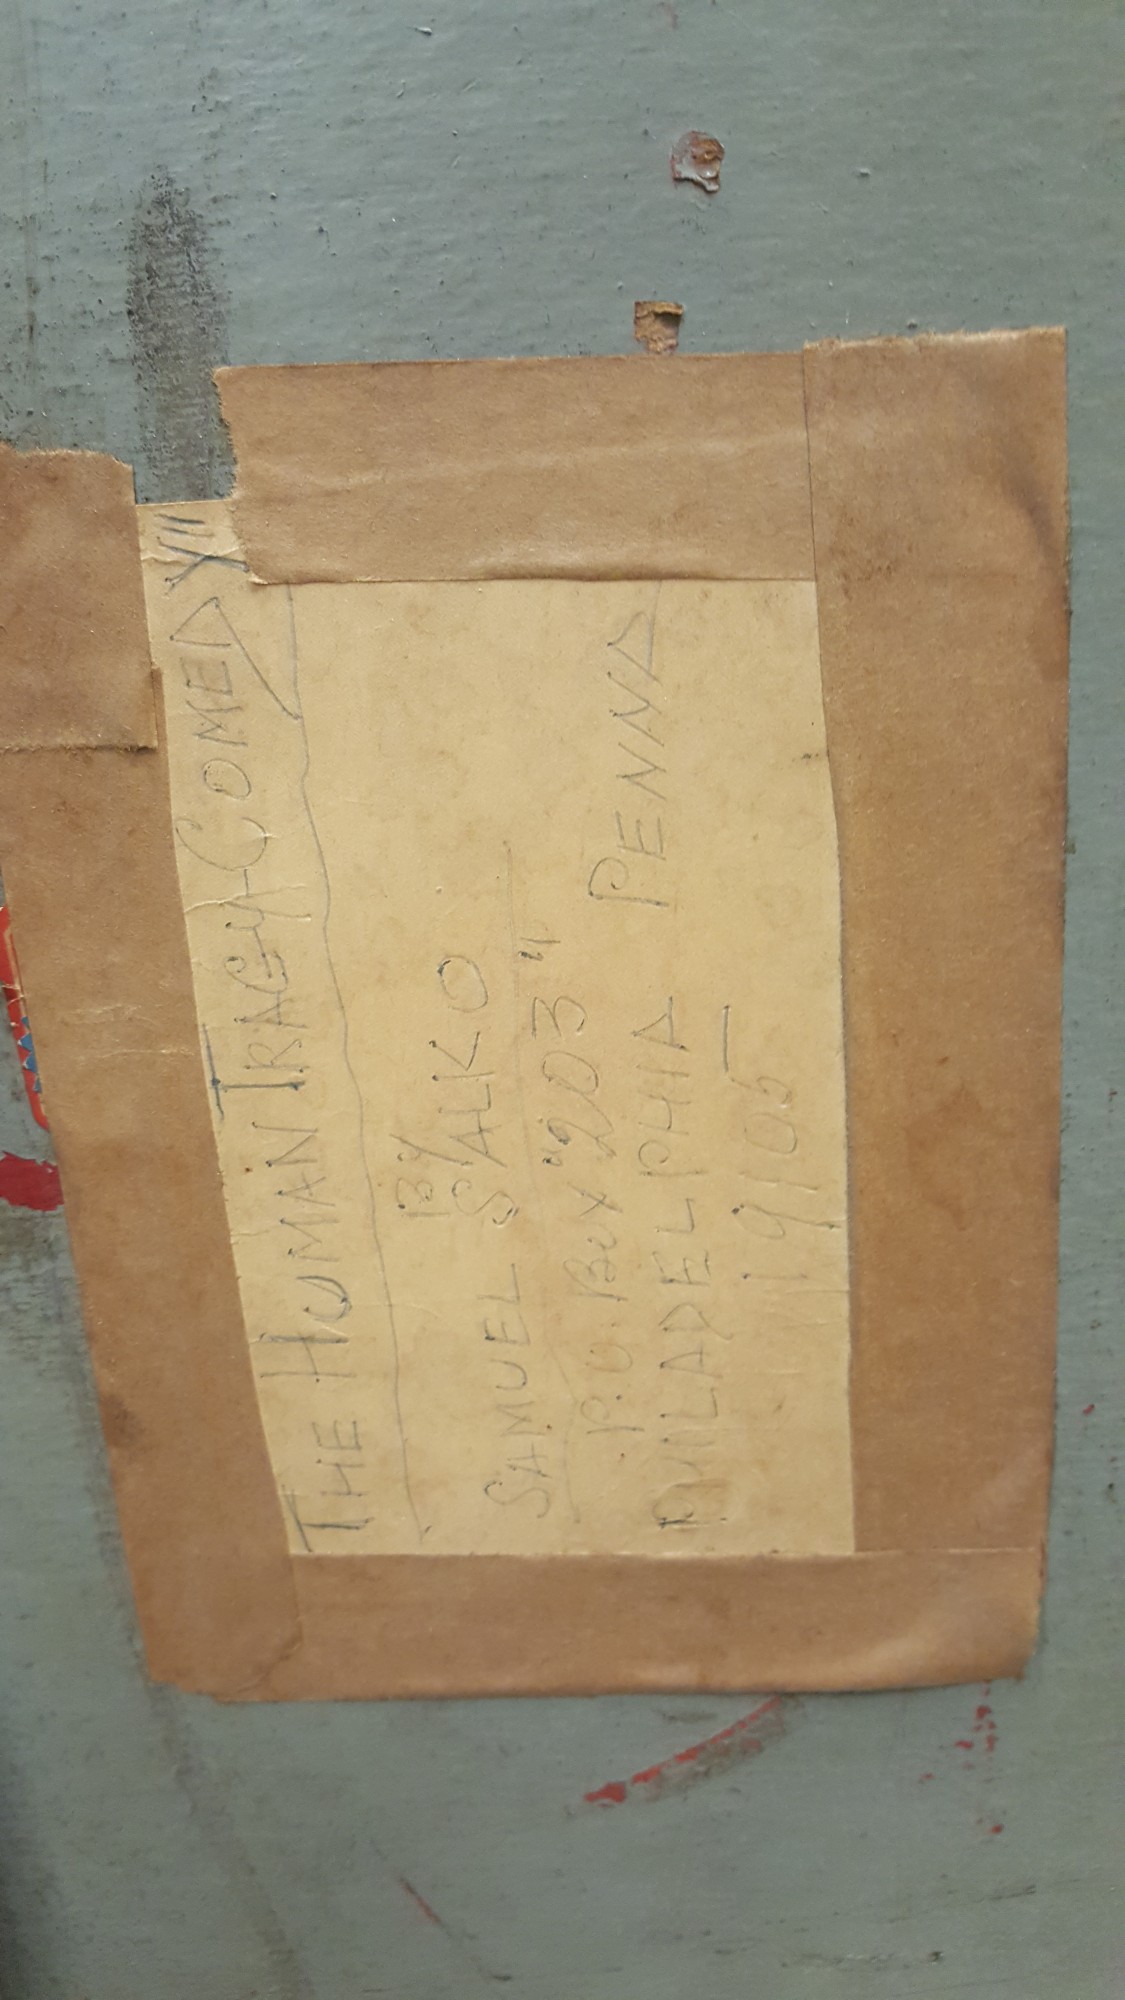 THE HUMAN TRAGY-COMEDY"
BY
SAMUEL SALKO
P.O. Box "203"
PHILADELPHIA PENNA
19105